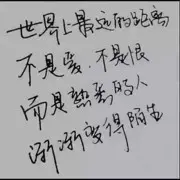 世界上最远的距离
不是爱、不是恨
而是熟悉的人
渐渐变得陌生